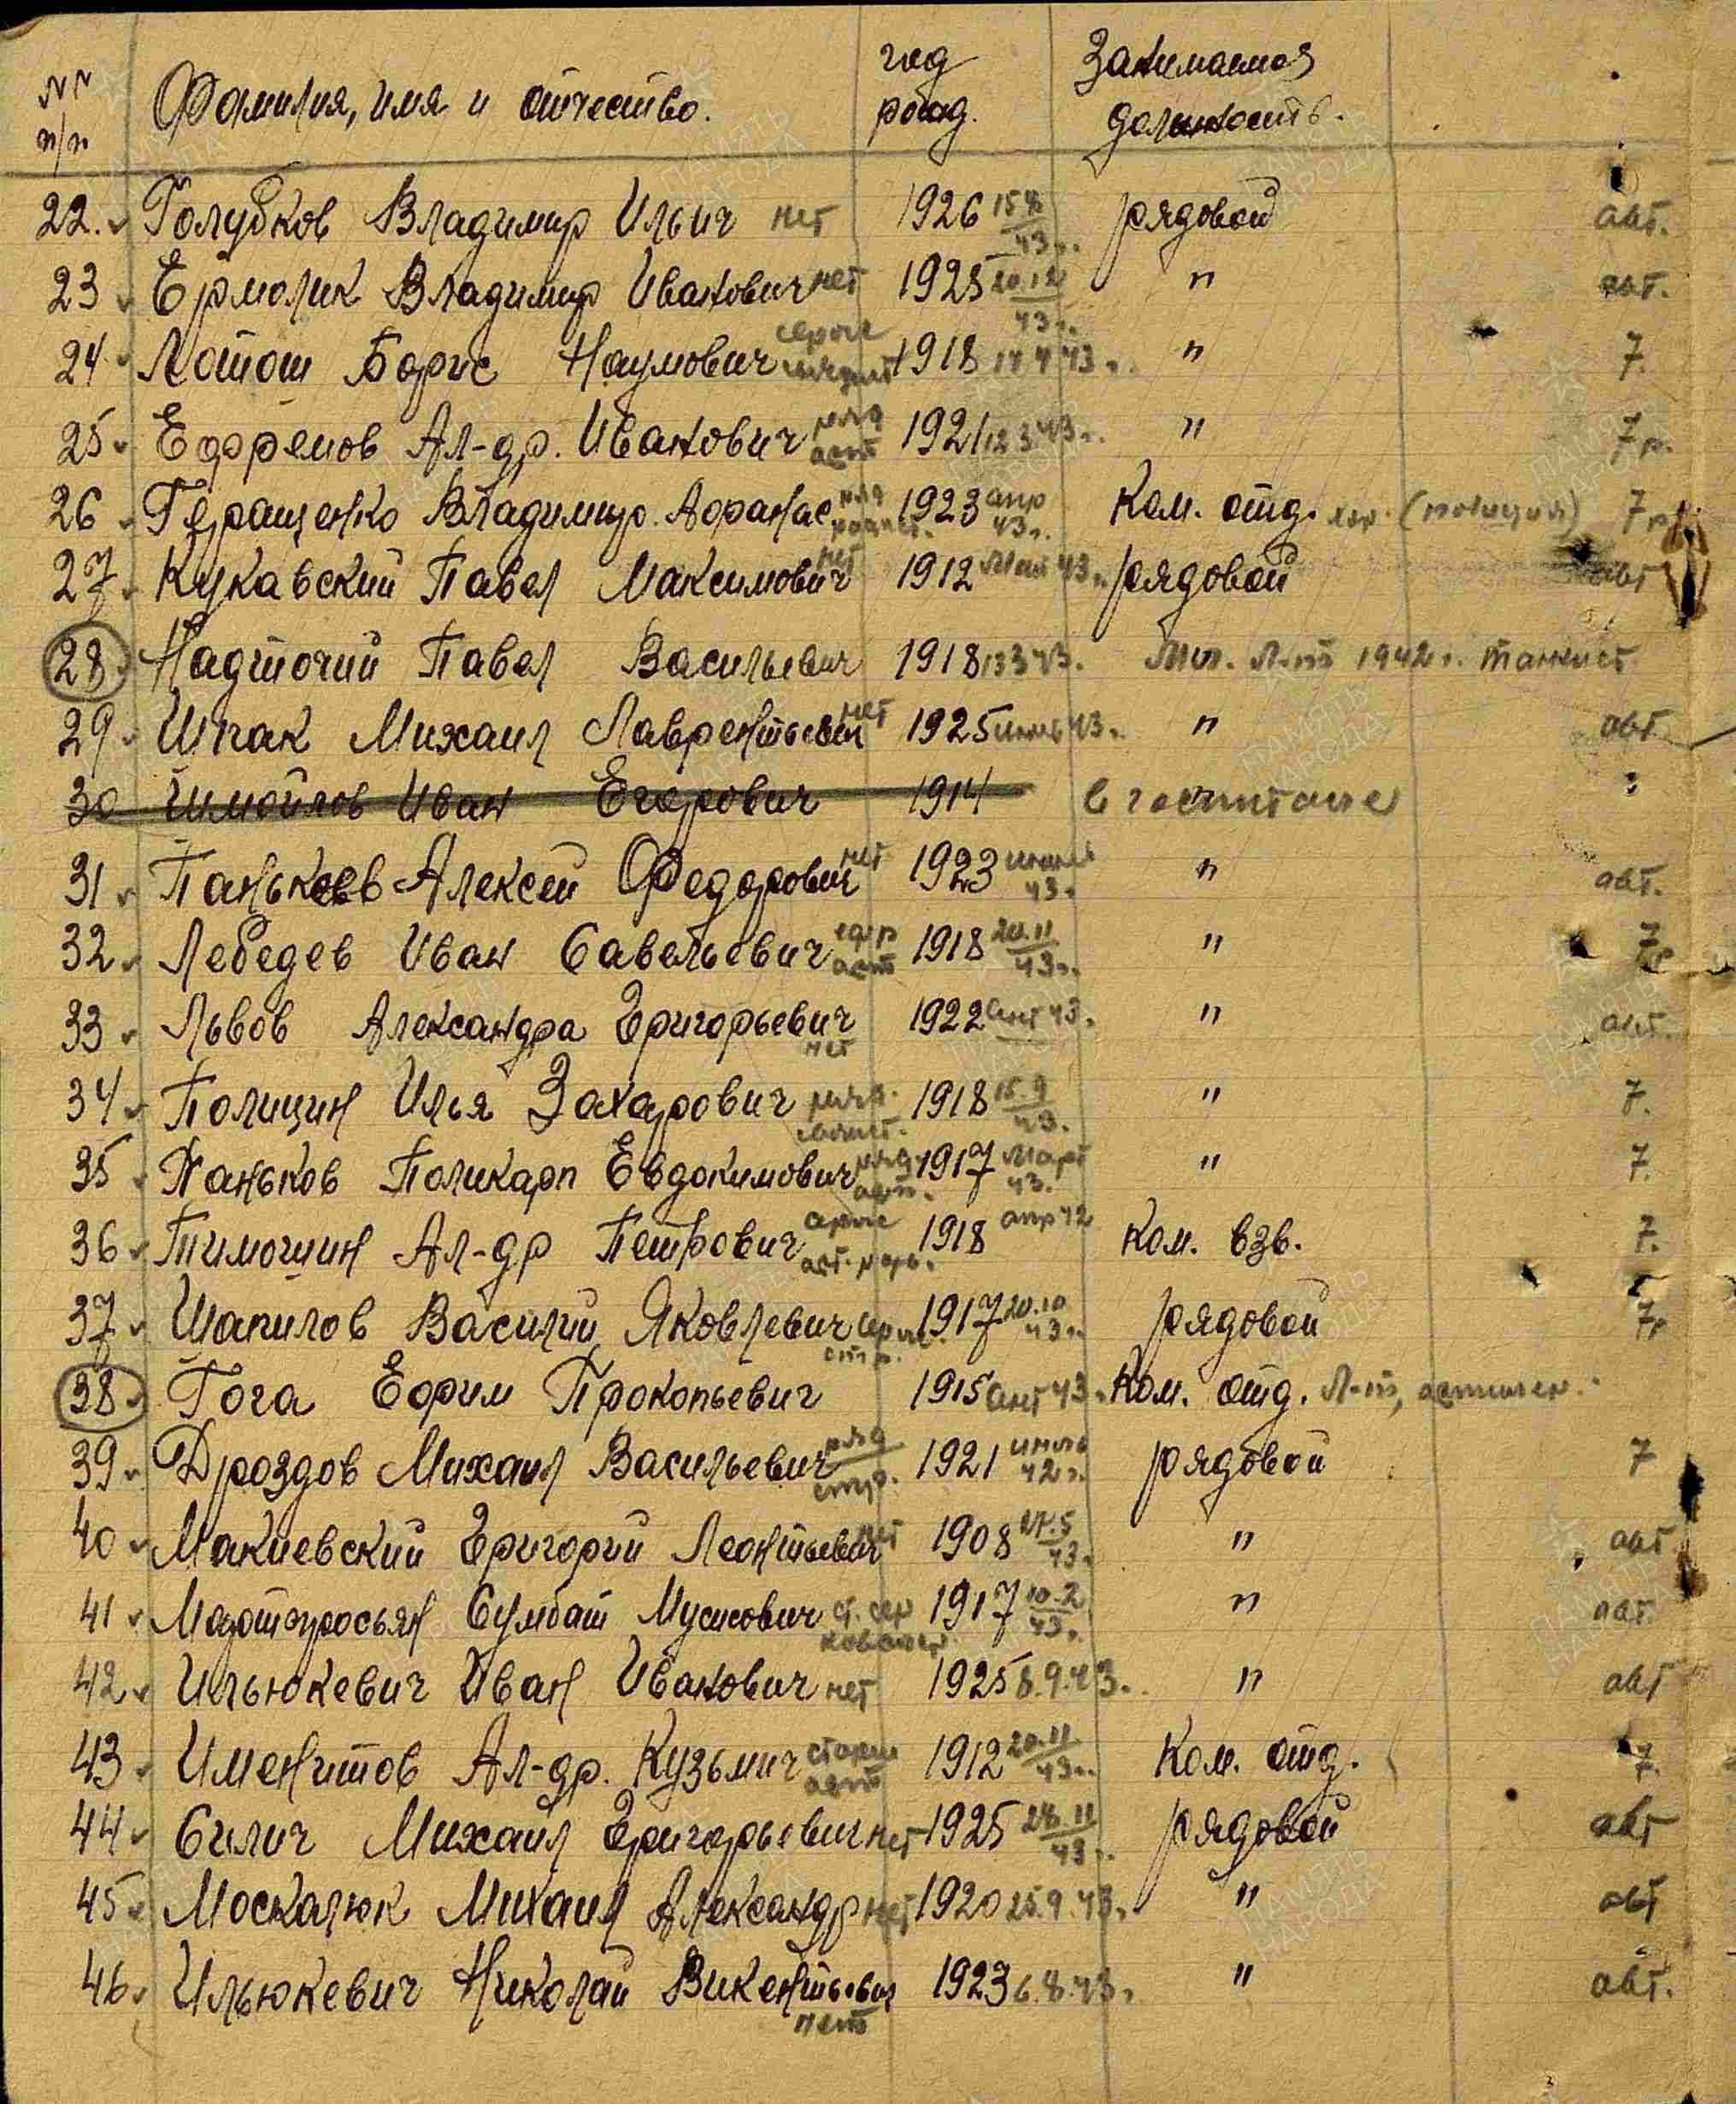 NN п/п Фамилия, имя и отчество. год рожд. Занимаемая должность.
22. Голубков Владимир Ильич нет 1926 43г. рядовой авт.
23 Ермолик Владимир Иванович нет 1925 20.12 43г. " авт.
24 Лотош Борис Наумович 1918 43г. " 7.
25 Ефремов Ал-др. Иванович мл 1921 12 3 43г. " 7р.
26 Геращенко Владимир Афанас 1923 апр 43г. Ком. отд. (полиция) 7р
27 Кукавский Павел Максимович нет 1912 май 43г. рядовой авт
28 Надточий Павел Васильевич 1918 13 3 43. Мл. Л-т 1942г. танкист
29 Шпак Михаил Лаврентьевич нет 1925 июнь 43г. " авт.
30 Иван Егорович 1914 в госпитале
31 Паньков Алексей Федорович нет 1923 43г. " авт.
32 Лебедев Иван Савельевич 1918 20.11 43г. " 7р
33 Львов Александра Григорьевич нет 1922 43г. " авт.
34 Полицин Илья Захарович 1918 15.9 43. " 7.
35 Паньков Поликарп Евдокимович 1917 март 43. " 7.
36 Тимошин Ал-др Петрович 1918 апр 42 Ком. взв. 7.
37 Шапилов Василий Яковлевич 1917 20.10 43г. рядовой 7р
38 Гога Ефрим Прокопьевич 1915 43г. Ком. отд. Л-т,
39 Дроздов Михаил Васильевич 1921 42г. рядовой 7
40 Макиевский Григорий Леонтьевич нет 1908 27.5 43. " авт.
41 Мартиросьян Сумбат Мусисович ст. сер 1917 10.2 43г. " авт.
42 Ильюкевич Иван Иванович нет 1925 8.9.43. " авт
43 Именитов Ал-др. Кузьмич 1912 20.11 43г. Ком. отд. 7.
44 Силич Михаил Григорьевич нет 1925 28.11 43г. рядовой авт
45 Москалюк Михаил Александр нет 1920 25.9.43г. " авт
46 Ильюкевич Николай Викентьевич нет 1923 6.8.43г. " авт.